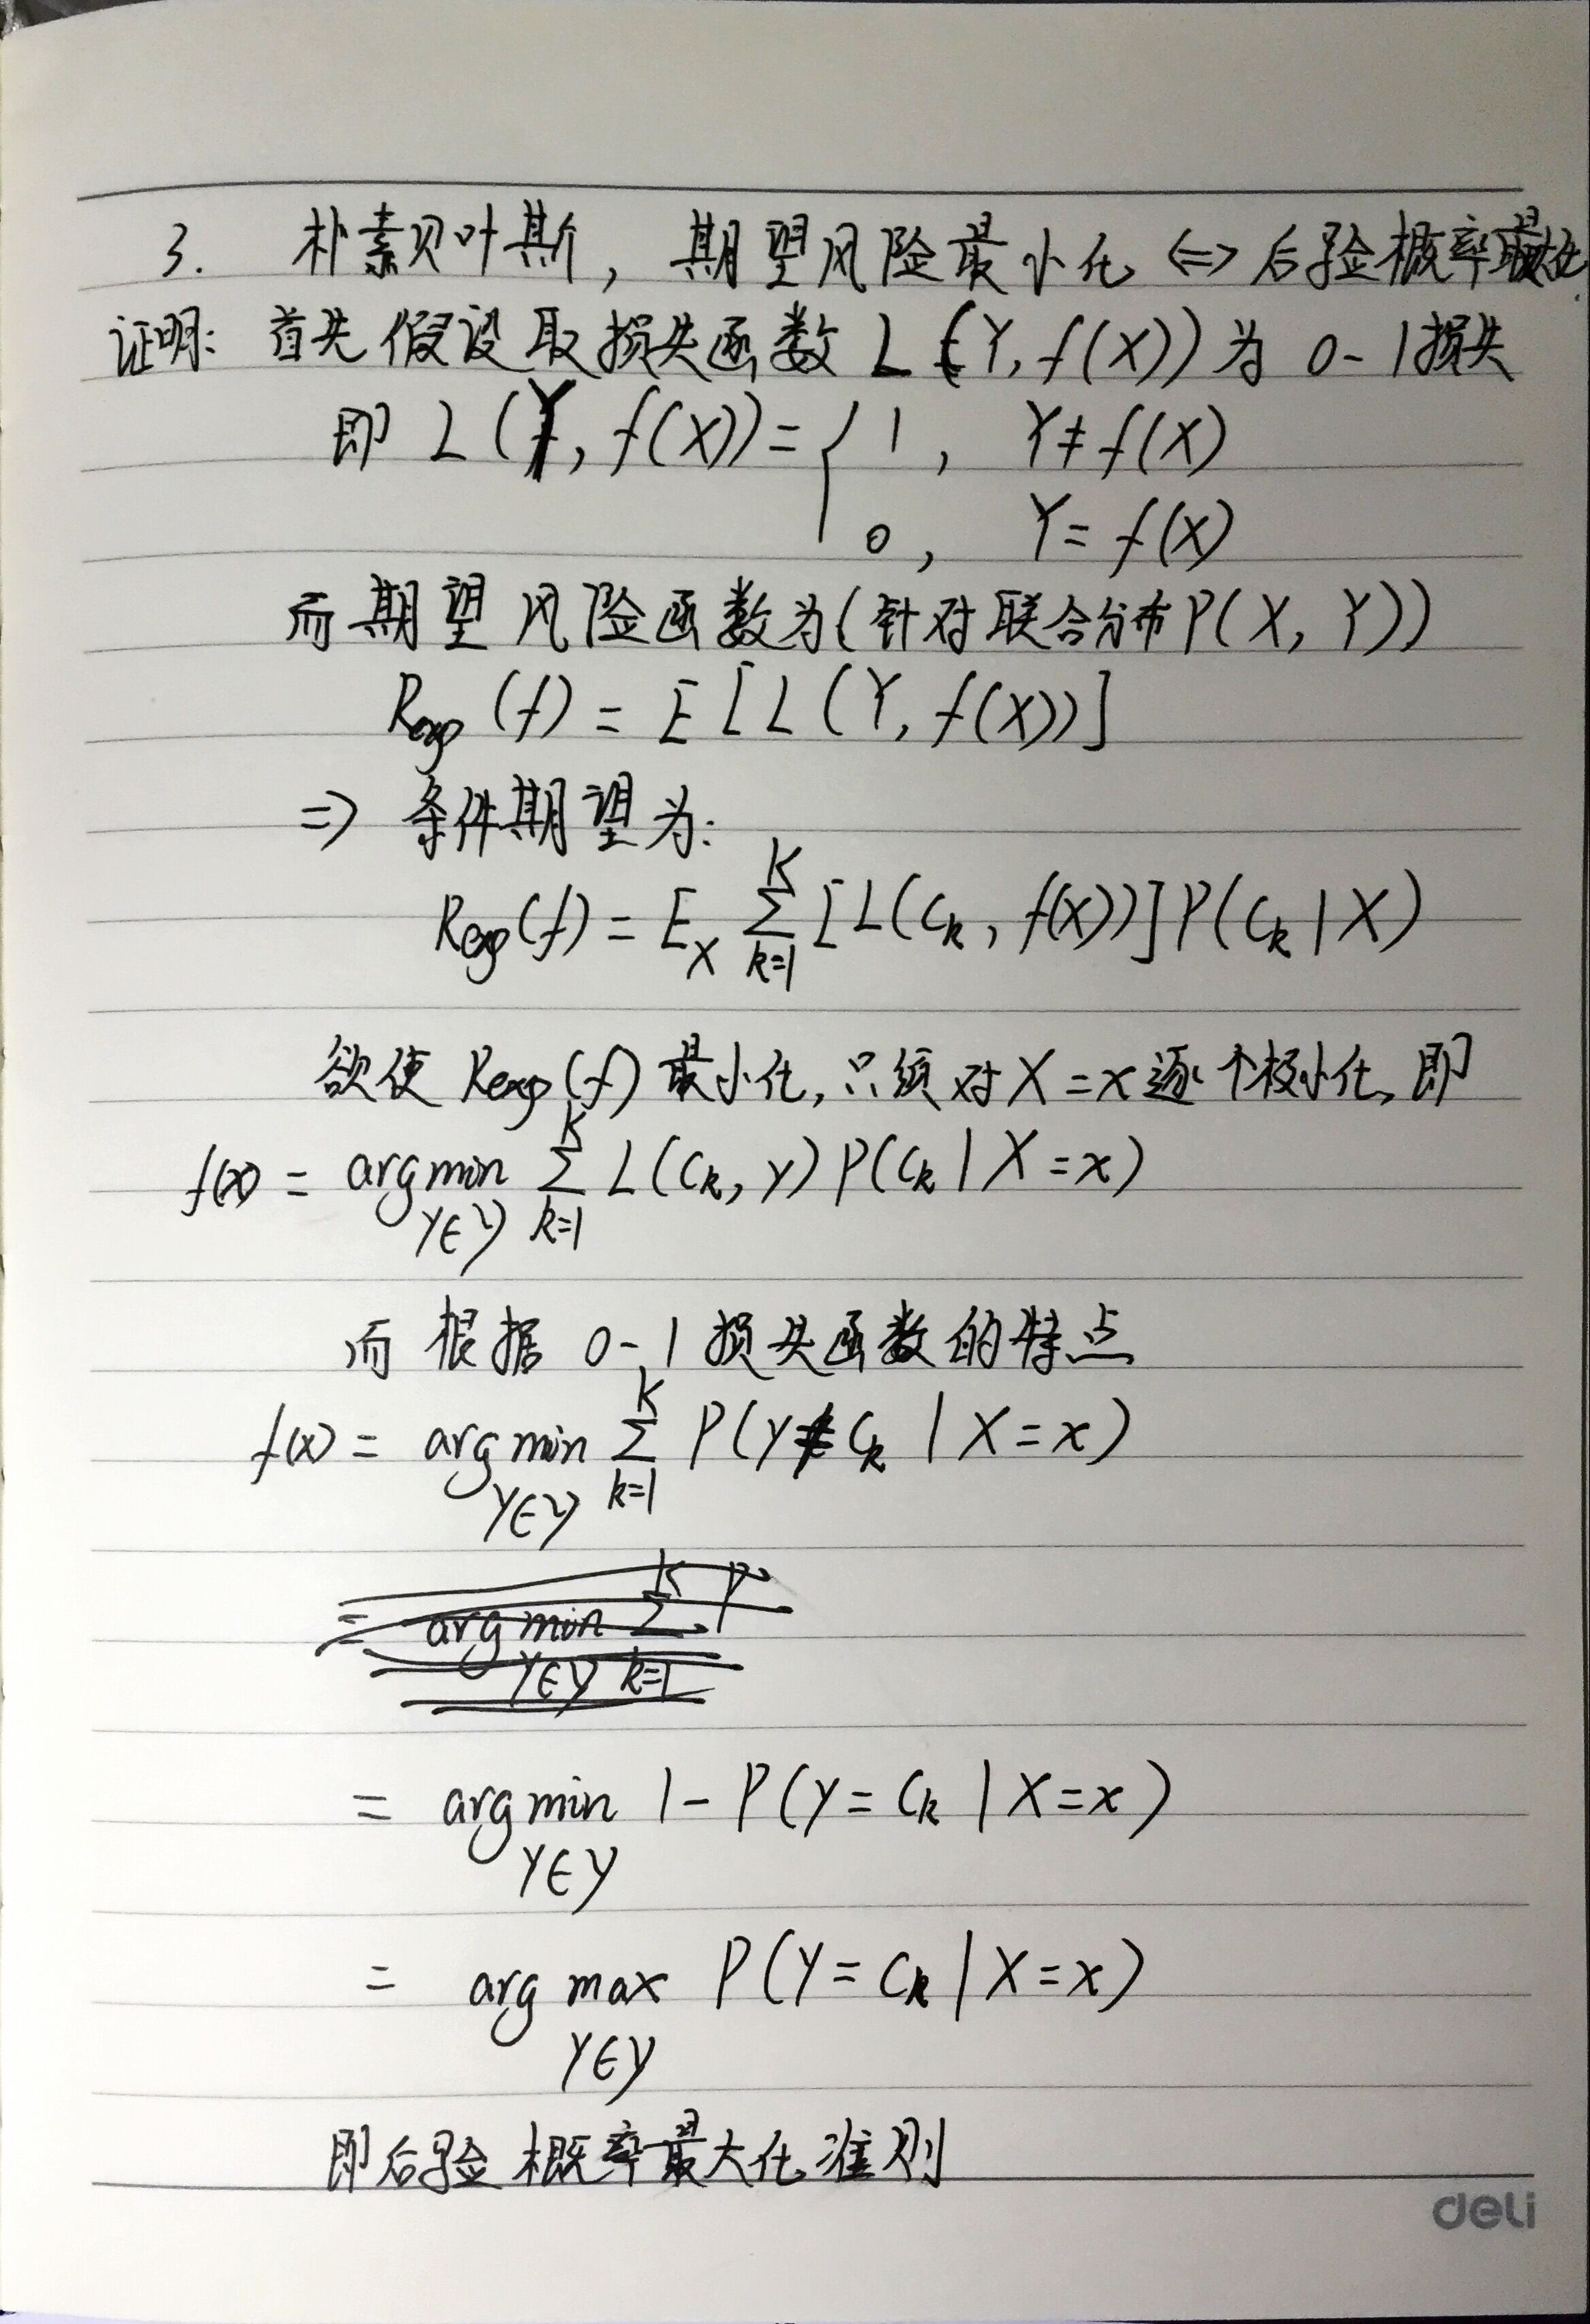 3. 朴素贝叶斯，期望风险最小化 ⇔ 后验概率最大化
证明：首先假设取损失函数 L(Y, f(X)) 为 0-1损失
即 L(Y, f(X)) = { 1, Y≠f(X)
0, Y=f(X)
而期望风险函数为(针对联合分布P(X, Y))
Rexp(f) = E[L(Y, f(X))]
⇒ 条件期望为：
Rexp(f) = E_X ∑_{k=1}^{K} [L(C_k, f(X))]P(C_k | X)
欲使 Rexp(f) 最小化，只须对X=x逐个极小化，即
f(x) = argmin_{y∈Y} ∑_{k=1}^{K} L(C_k, y) P(C_k | X=x)
而根据 0-1 损失函数的特点
f(x) = arg min_{y∈Y} ∑_{k=1}^{K} P(y≠C_k | X=x)
= arg min_{y∈Y} ∑_{k=1}^{K} P
= arg min_{y∈Y} 1-P(y=C_k | X=x)
= arg max_{y∈Y} P(y=C_k | X=x)
即后验概率最大化准则
deli